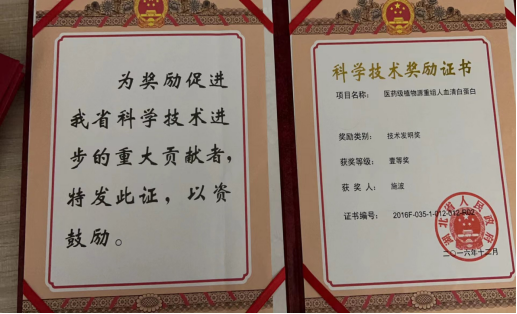 为奖励促进
我省科学技术进
步的重大贡献者，
特发此证，以资
鼓励。
科学技术奖励证书
项目名称： 医药级植物源重组人血清白蛋白
奖励类别： 技术发明奖
获奖等级： 壹等奖
获奖人： 施波
证书编号： 2016F-035-1-012-012-R02
湖北省人民政府
二〇一六年十二月